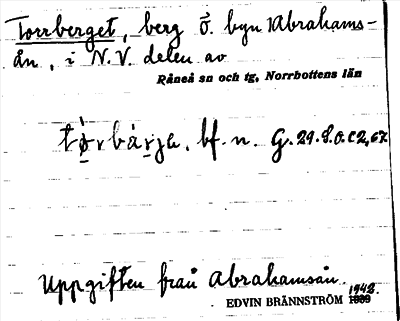 Torrberget, berg ö. byn Abrahams-
ån, i N.V. delen av
Råneå sn och tg, Norrbottens län
bf. n. G.
Uppgiften från Abrahamsån.
1942.
EDVIN BRÄNNSTRÖM 1939